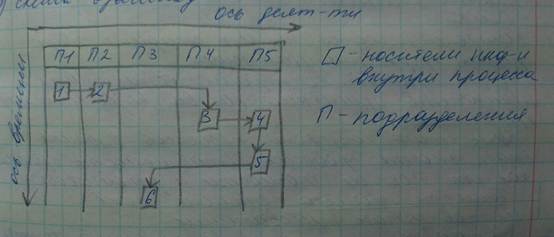 ось деят-ти
П1 П2 П3 П4 П5
1 2
3 4
5
6
ось времени
□ - носители инф-и
внутри процесса
П - подразделения